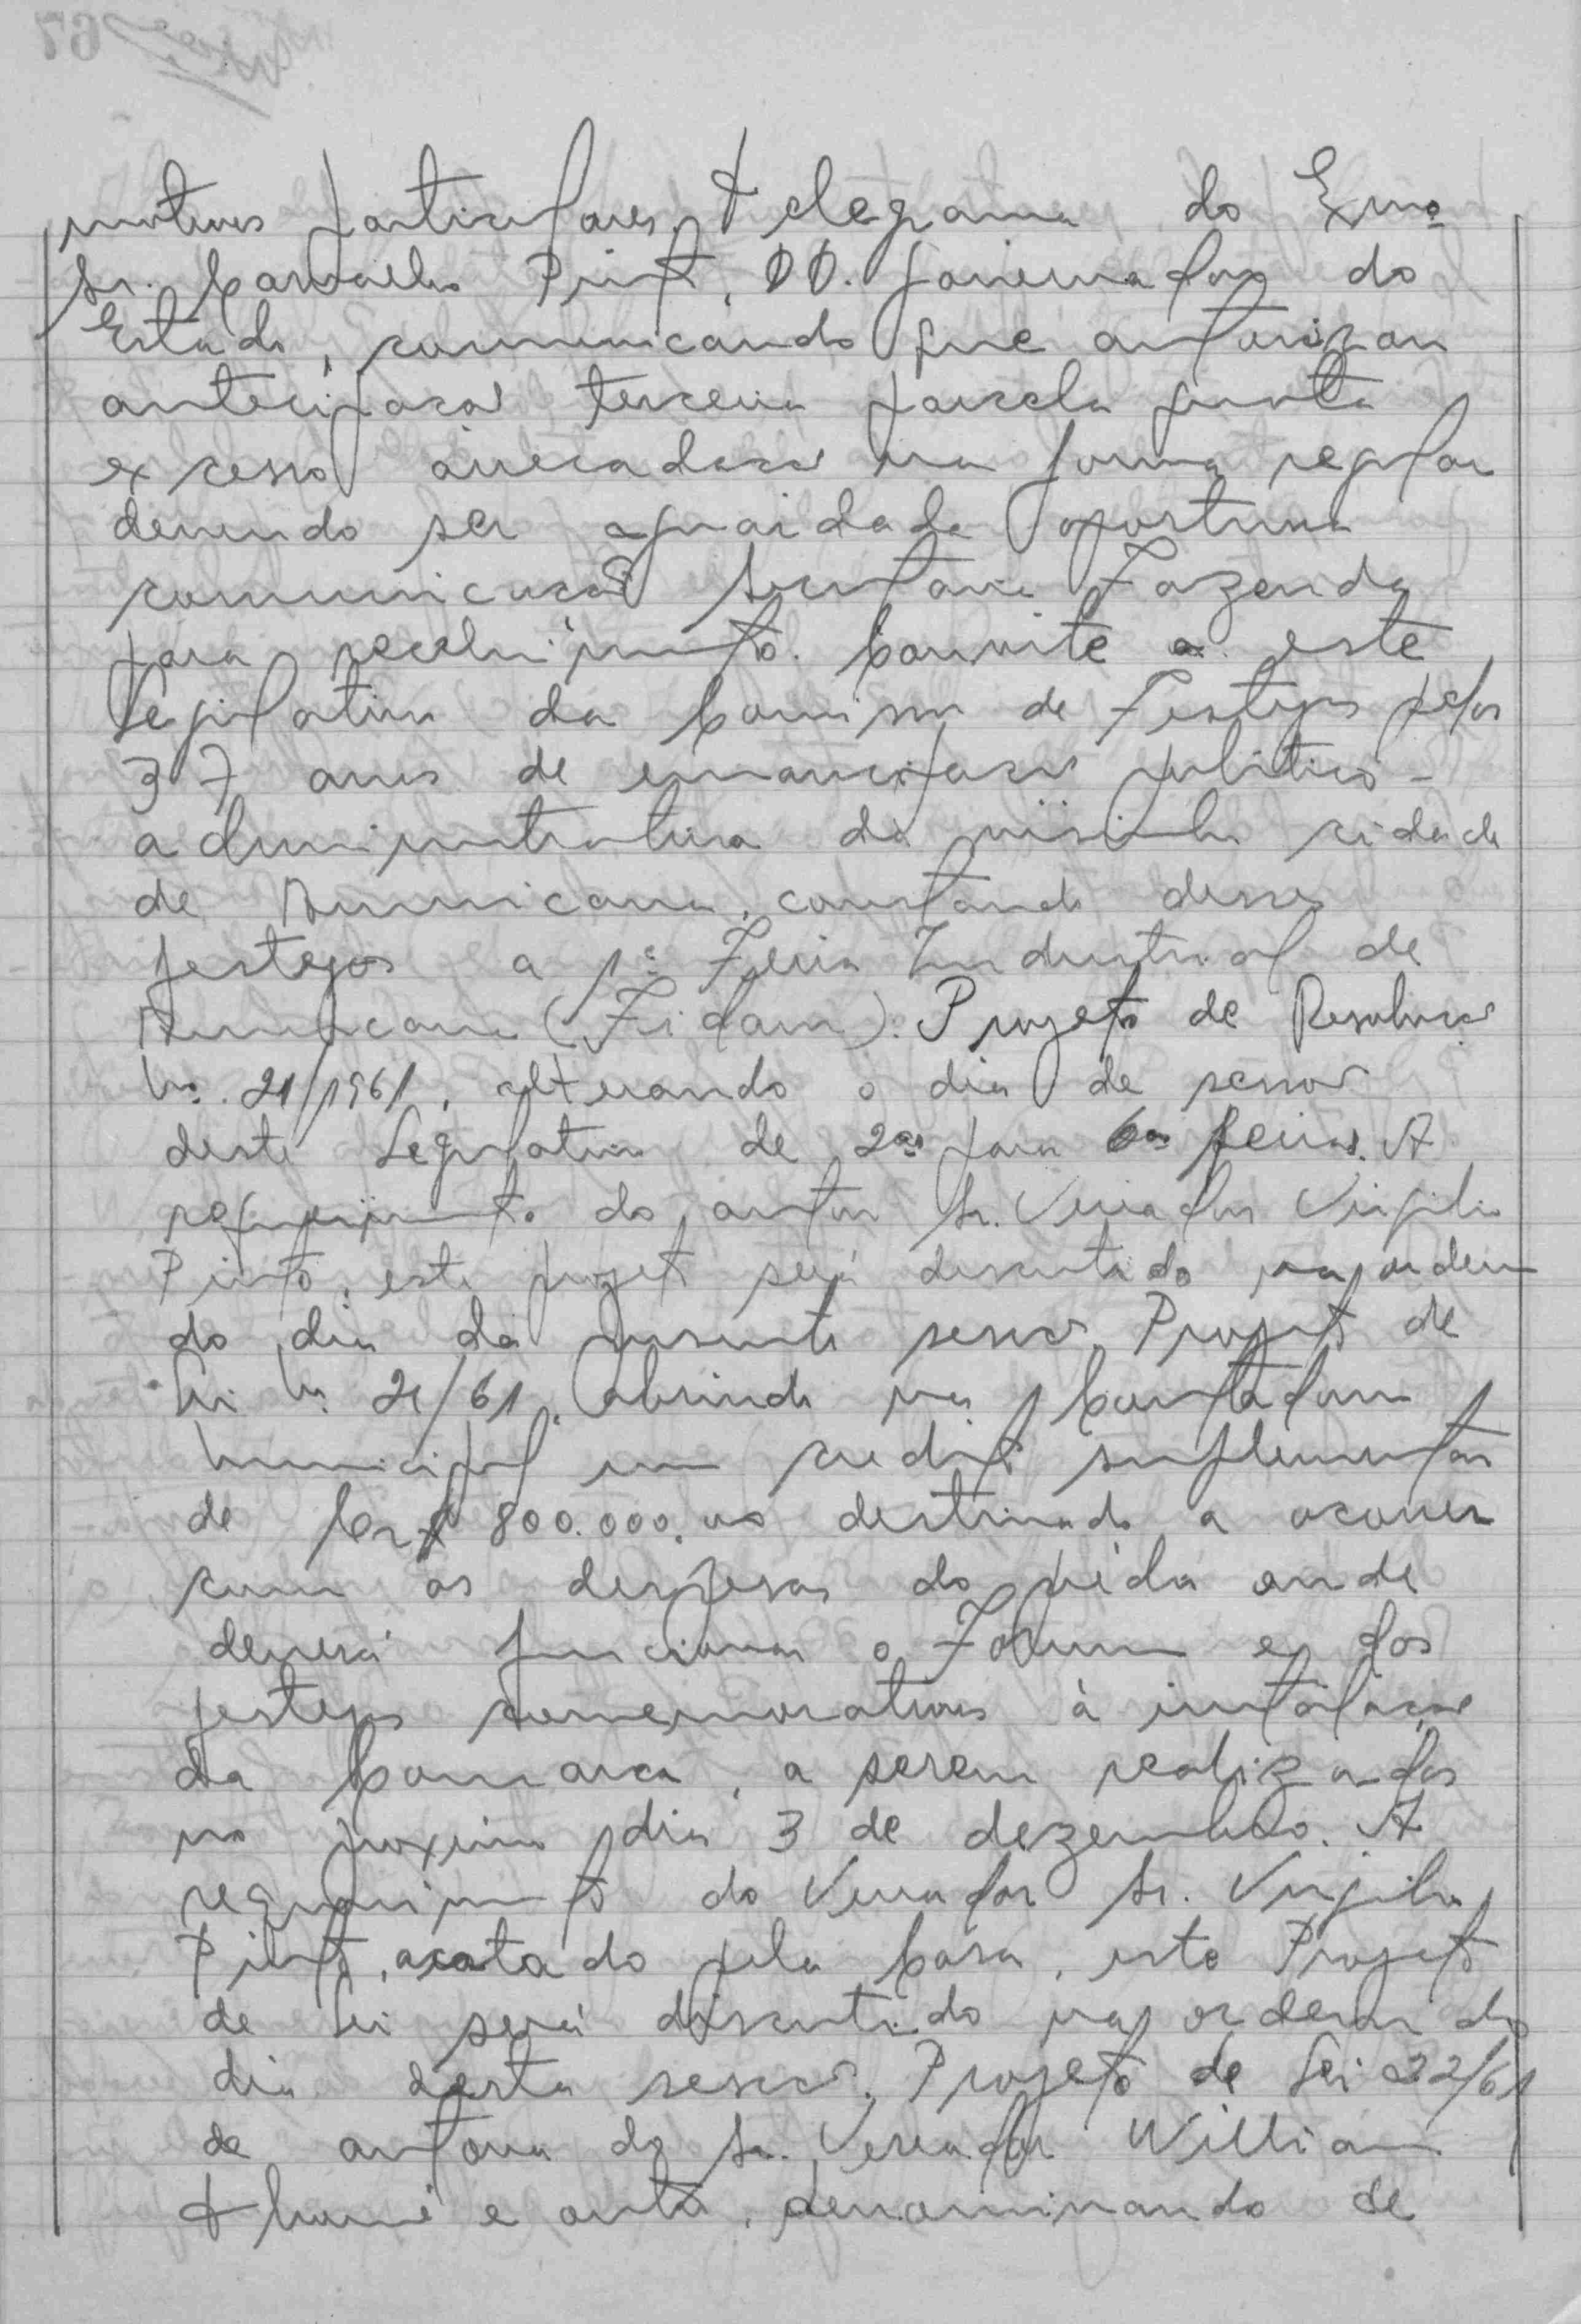 motivos particulares. Telegrama do Exmo
Sr. Carvalho Pinto, DD. Governador do
Estado, comunicando que autorizou
antecipação terceira parcela quota
excesso arrecadação na forma regular
devendo ser aguardada oportuna
comunicação Secretaria Fazenda
para recebimento. Convite a este
Legislativo da Comissão de Festejos pelos
37 anos de emancipação político-
administrativa da visinha cidade
de Americana, constando desses
festejos a 1ª Feira Industrial de
Americana (Fidam). Projeto de Resolução
No. 21/1961, alterando o dia de sessão
deste Legislativo de 2as para 6as feiras. A
requerimento do autor Sr. Vereador Virgilio
Pinto, este projeto será discutido na ordem
do dia da presente sessão. Projeto de
Lei No. 21/61, abrindo na Contadoria
Municipal um credito suplementar
de Cr$ 800.000,00 destinado a ocorrer
com as despesas do prédio onde
deverá funcionar o Forum e dos
festejos comemorativos à instalação
da Comarca, a serem realizados
no proximo dia 3 de dezembro. A
requerimento do Vereador Sr. Virgilio
Pinto, acatado pela Casa, este Projeto
de Lei será discutido na ordem do
dia desta sessão. Projeto de Lei 22/61
de autoria do Sr. Vereador William
e outro, denominando de